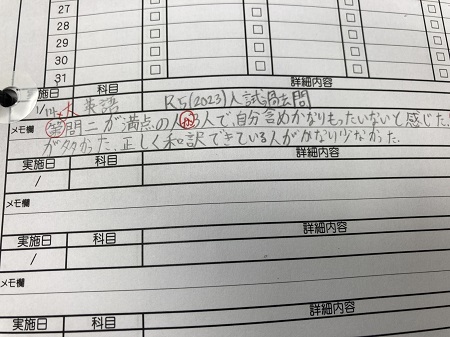 27
28
29
30
31
実施日 科目 詳細内容
1/14 火 英語 R5(2023)入試過去問
メモ欄 第問二が満点の人が3人で、自分含めかなりもったいないと感じた。
が多かった、正しく和訳できている人がかなり少なかった。
実施日 科目 詳細内容
/
メモ欄
実施日 科目 詳細内容
/
メモ欄
実施日 科目 詳細内容